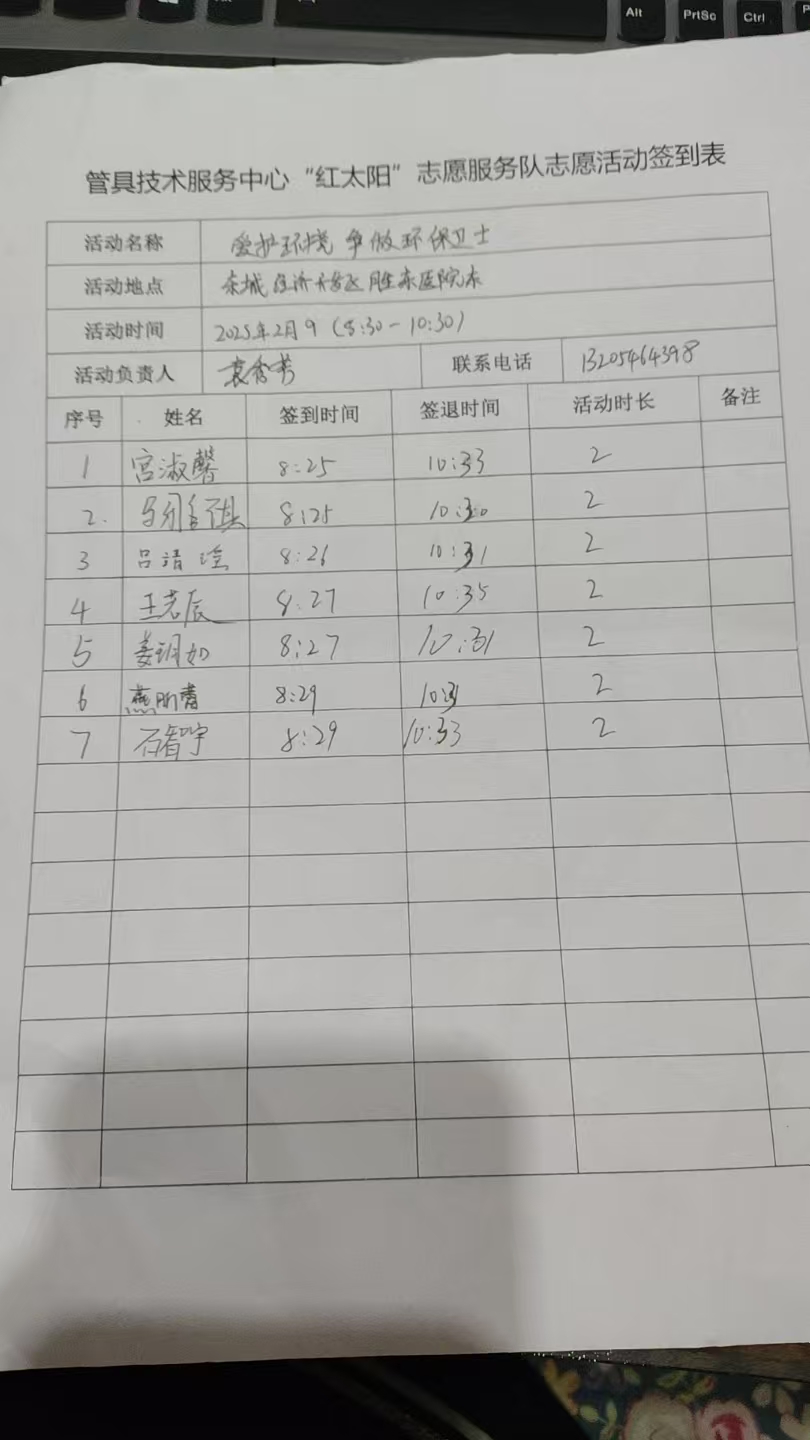 Alt PrtSc Ctrl
管具技术服务中心“红太阳”志愿服务队志愿活动签到表
活动名称 爱护环境 争做环保卫士
活动地点 东城经济开发区胜东医院东
活动时间 2025年2月9(8:30-10:30)
活动负责人 联系电话 13205464398
序号 姓名 签到时间 签退时间 活动时长 备注
1 宫淑馨 8:25 10:33 2
2. 8:25 10:30 2
3 吕靖滢 8:26 10:31 2
4 王若辰 8:27 10:35 2
5 姜玥如 8:27 10:31 2
6 燕昕蕾 8:29 10:31 2
7 石智宇 8:29 10:33 2